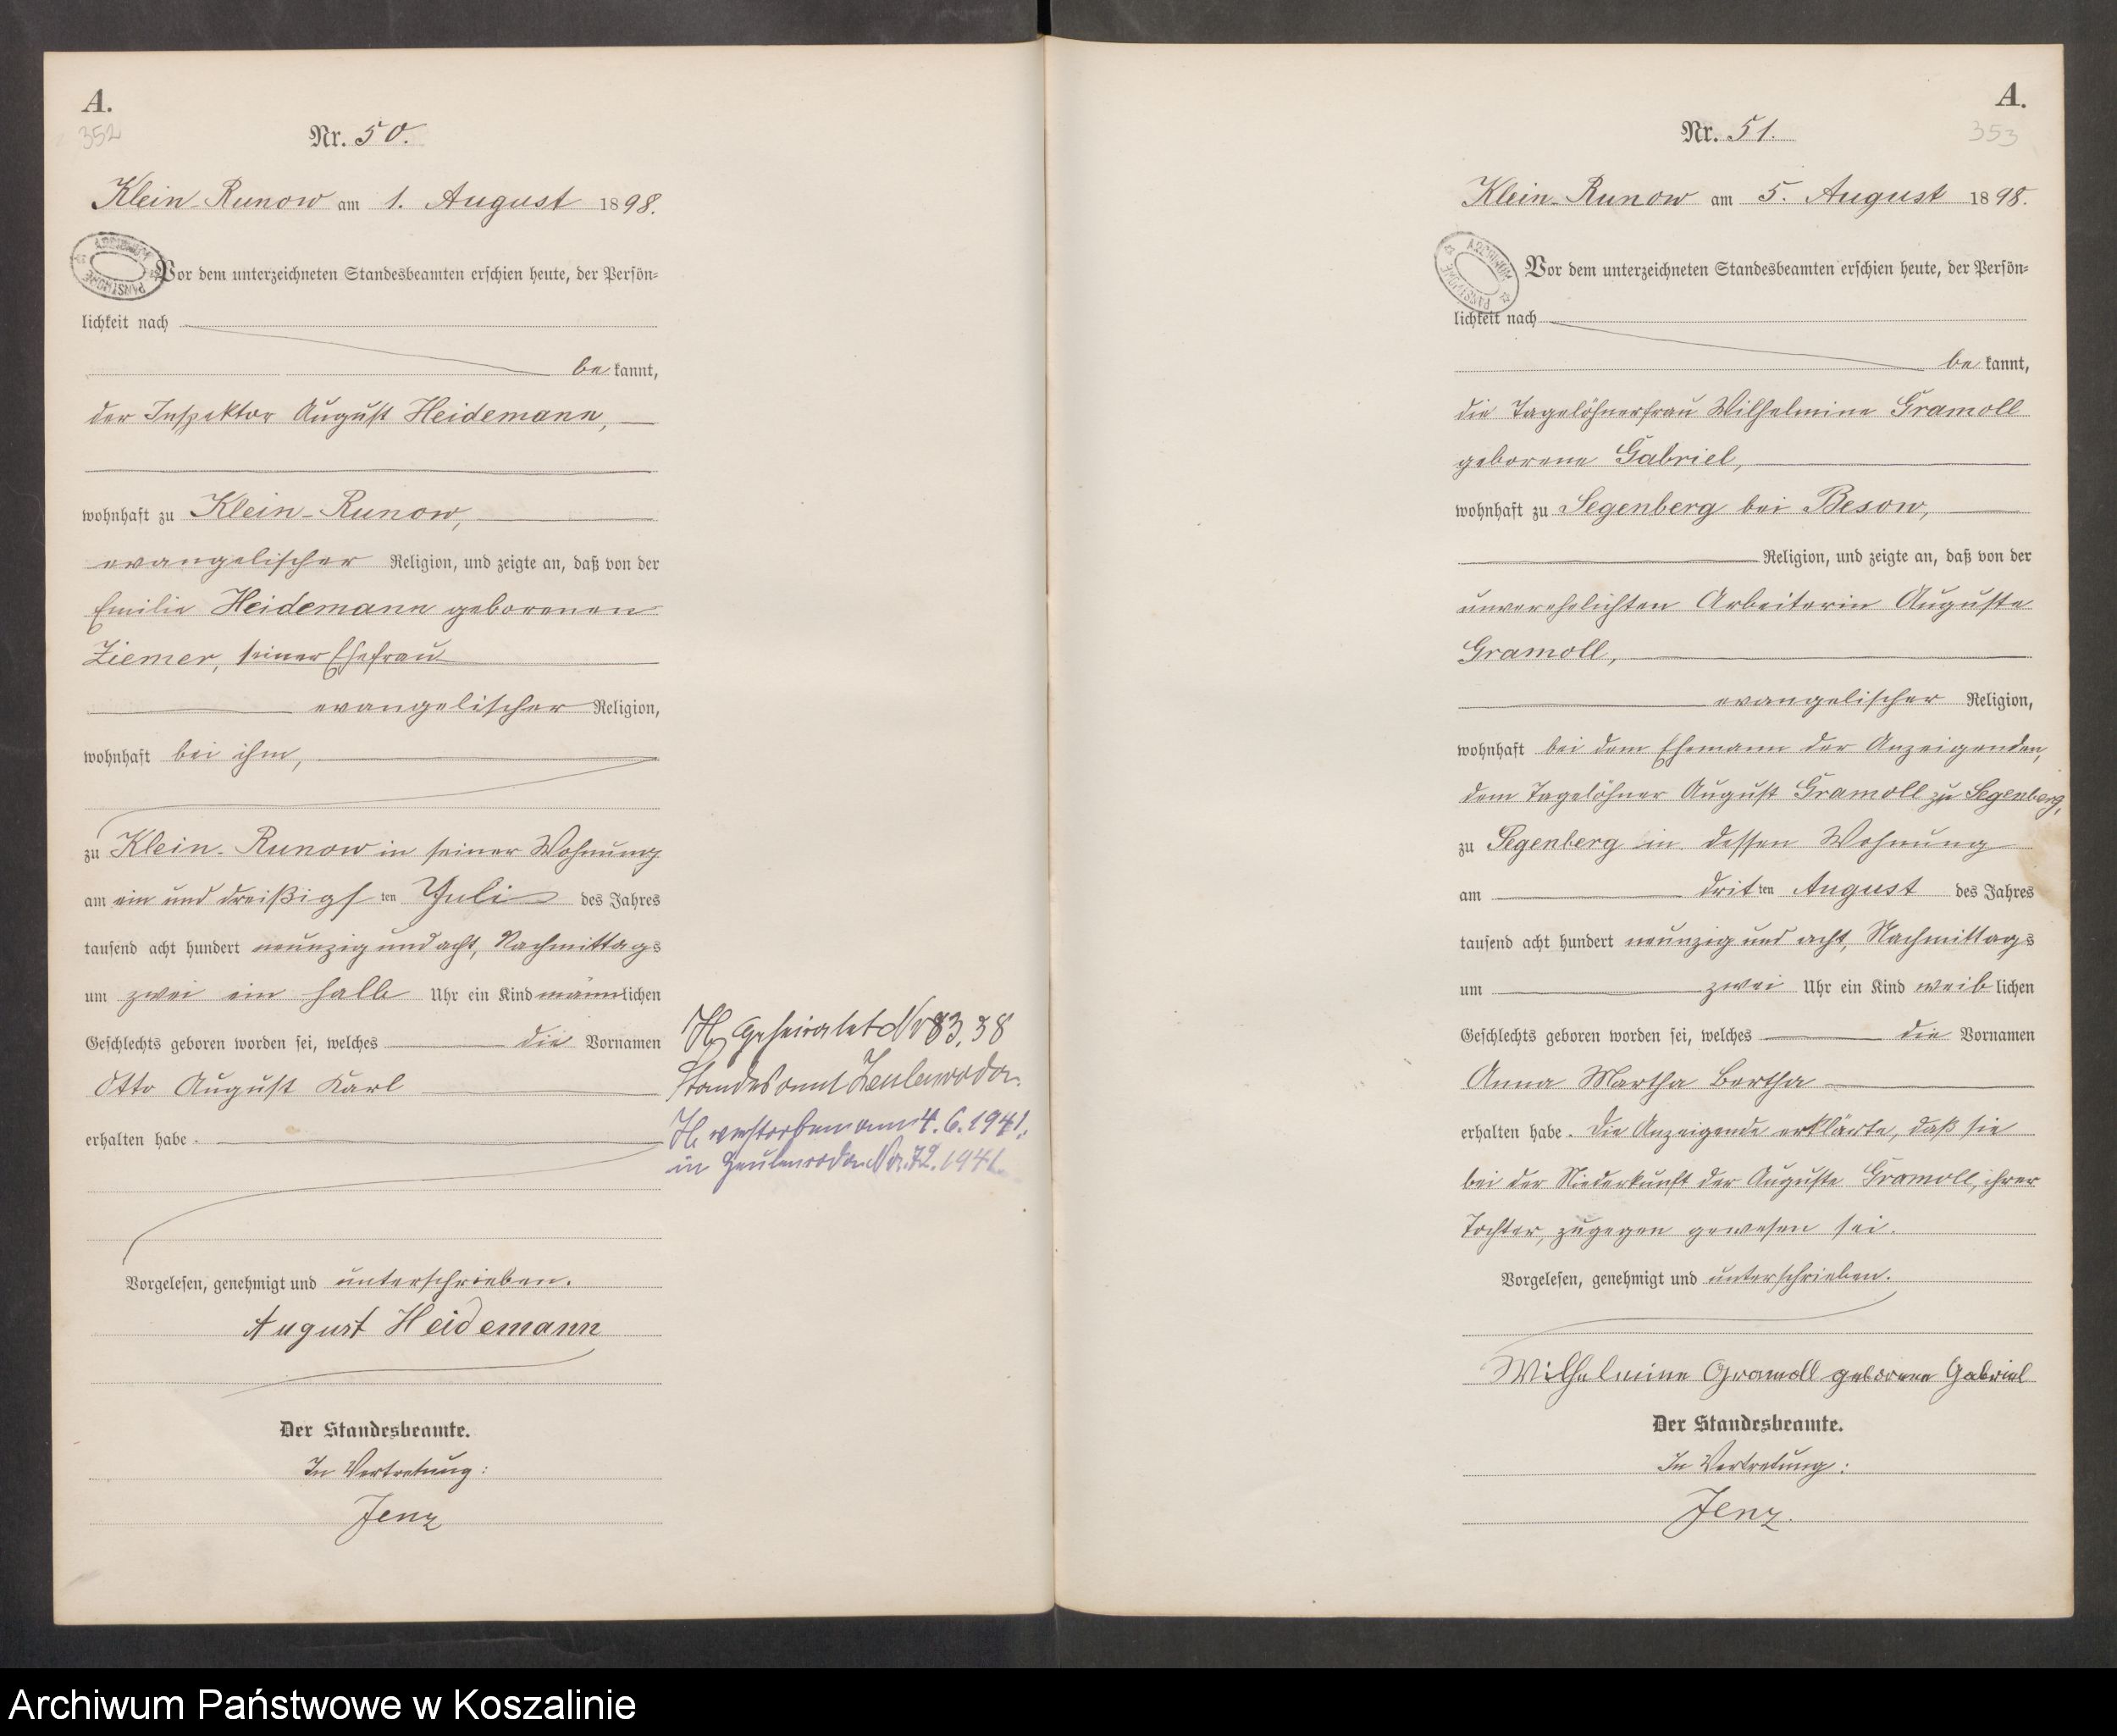 A.
352
Nr. 50.
Klein-Runow am 1. August 1898.
ARCHIWUM PAŃSTWOWE
Vor dem unterzeichneten Standesbeamten erschien heute, der Persön=
lichkeit nach
be kannt,
der Inspektor August Heidemann,
wohnhaft zu Klein-Runow,
evangelischer Religion, und zeigte an, daß von der
Emilie Heidemann geborenen
Ziemer, seiner Ehefrau
evangelischer Religion,
wohnhaft bei ihm,
zu Klein-Runow in seiner Wohnung
am ein und dreißigsten Juli des Jahres
tausend acht hundert neunzig und acht, Nachmittags
um zwei ein halb Uhr ein Kind männlichen
Geschlechts geboren worden sei, welches die Vornamen
Otto August Karl
erhalten habe.
Vorgelesen, genehmigt und unterschrieben.
August Heidemann
Der Standesbeamte.
In Vertretung:
Jenz
Geheiratet Nr 83.38
Standesamt Zeulenroda.
verstorben am 4.6.1941.
in Zeulenroda Nr. 72.1941
A.
353
Nr. 51.
Klein-Runow am 5. August 1898.
ARCHIWUM PAŃSTWOWE
Vor dem unterzeichneten Standesbeamten erschien heute, der Persön=
lichkeit nach
be kannt,
die Tagelöhnerfrau Wilhelmine Gramoll
geborene Gabriel,
wohnhaft zu Segenberg bei Besow,
Religion, und zeigte an, daß von der
unverehelichten Arbeiterin Auguste
Gramoll,
evangelischer Religion,
wohnhaft bei dem Ehemann der Anzeigenden,
dem Tagelöhner August Gramoll zu Segenberg,
zu Segenberg in dessen Wohnung
am dritten August des Jahres
tausend acht hundert neunzig und acht, Nachmittags
um zwei Uhr ein Kind weiblichen
Geschlechts geboren worden sei, welches die Vornamen
Anna Martha Bertha
erhalten habe. Die Anzeigende erklärte, daß sie
bei der Niederkunft der Auguste Gramoll, ihrer
Tochter, zugegen gewesen sei.
Vorgelesen, genehmigt und unterschrieben.
Wilhelmine Gramoll geborene Gabriel
Der Standesbeamte.
In Vertretung:
Jenz.
Archiwum Państwowe w Koszalinie